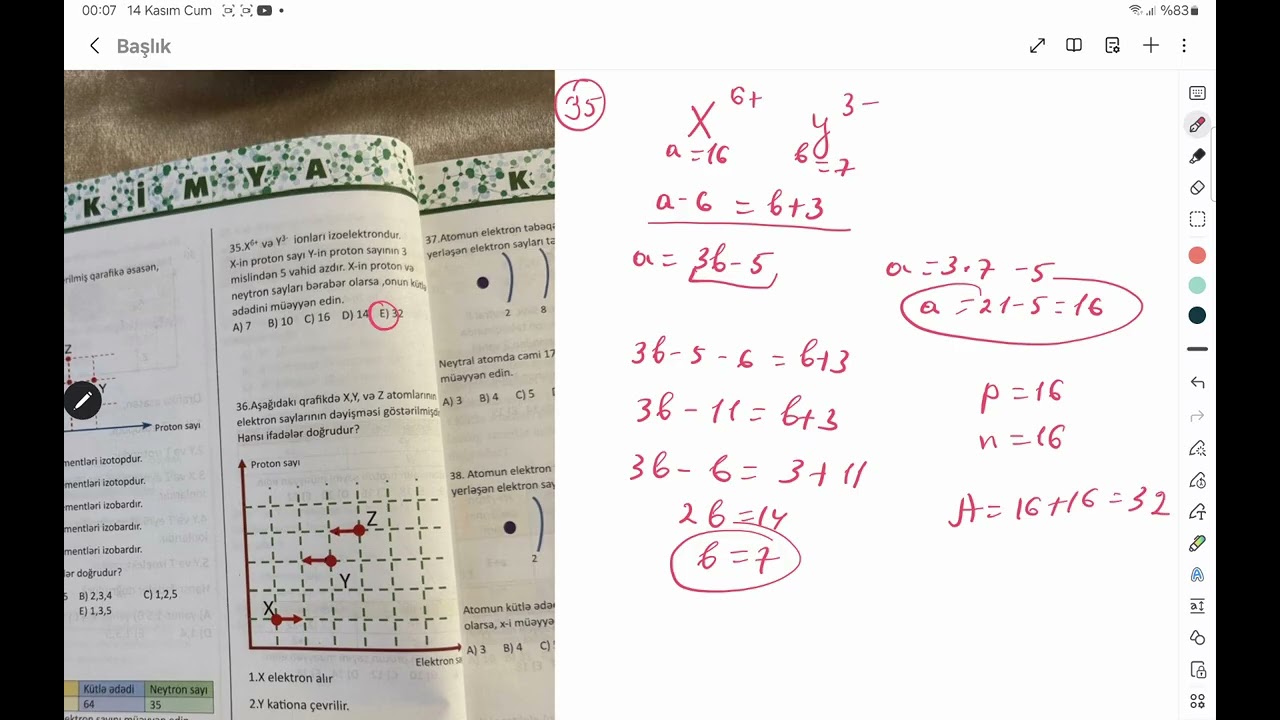 00:07 14 Kasım Cum
%83
Başlık
KİMYA
K
erilmiş qarafikə əsasən,
Z
Y
Proton sayı
mentləri izotopdur.
mentləri izotopdur.
mentləri izobardır.
mentləri izobardır.
mentləri izobardır.
lər doğrudur?
5 B) 2,3,4 C) 1,2,5
E) 1,3,5
Kütlə ədədi Neytron sayı
64 35
35.X6+ və Y3- ionları izoelektrondur.
X-in proton sayı Y-in proton sayının 3
mislindən 5 vahid azdır. X-in proton və
neytron sayları bərabər olarsa ,onun kütlə
ədədini müəyyən edin.
A) 7 B) 10 C) 16 D) 14 E) 32
36.Aşağıdakı qrafikdə X,Y, və Z atomlarının
elektron saylarının dəyişməsi göstərilmişdi
Hansı ifadələr doğrudur?
Proton sayı
Z
Y
X
Elektron sa
1.X elektron alır
2.Y kationa çevrilir.
37.Atomun elektron təbəqə
yerləşən elektron sayları ta
2 8
Neytral atomda cəmi 17
müəyyən edin.
A) 3 B) 4 C) 5
38. Atomun elektron
yerləşən elektron say
2
Atomun kütlə ədə
olarsa, x-i müəyyə
A) 3 B) 4 C)
35
X 6+ y 3-
a = 16 b = 7
a - 6 = b+3
a = 3b - 5
3b - 5 - 6 = b+3
3b - 11 = b+3
3b - b = 3+11
2b = 14
b = 7
a = 3·7 - 5
a = 21 - 5 = 16
p = 16
n = 16
A = 16+16 = 32